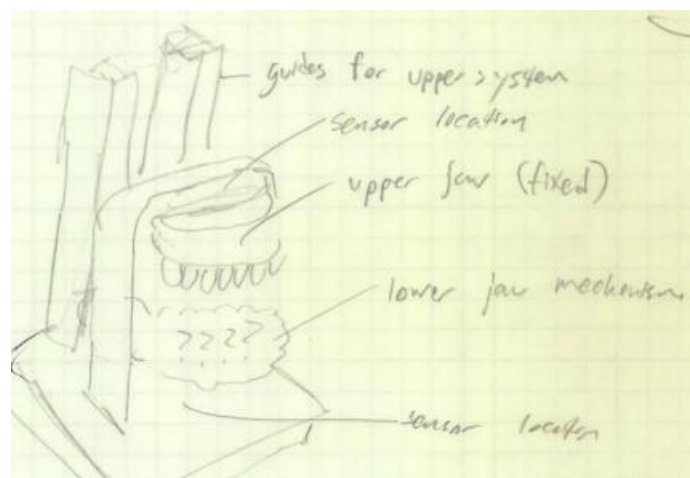 guides for upper system
sensor location
upper jaw (fixed)
lower jaw mechanism
????
sensor location